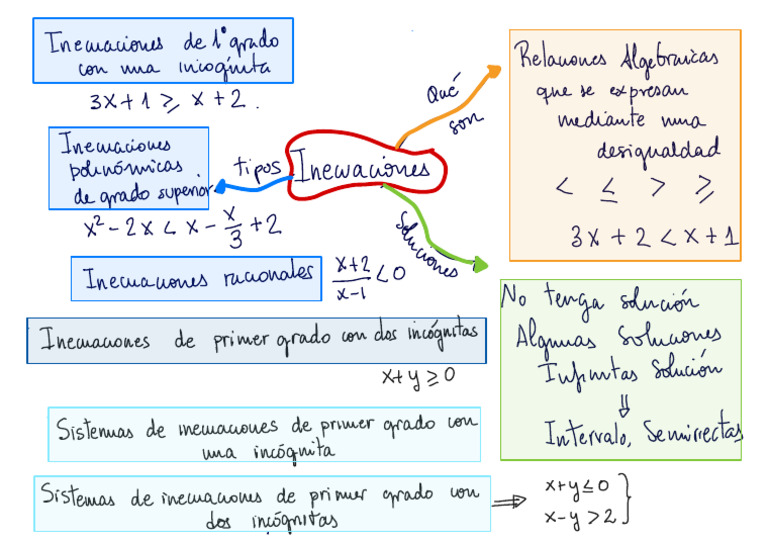 Inecuaciones de 1º grado
con una incógnita
3x+1 ≥ x+2.
Inecuaciones
polinómicas
de grado superior
x² - 2x < x - x/3 + 2
Inecuaciones racionales
x+2/x-1 < 0
Inecuaciones de primer grado con dos incógnitas
x+y ≥ 0
Sistemas de inecuaciones de primer grado con
una incógnita
Sistemas de inecuaciones de primer grado con
dos incógnitas
⇒
x+y ≤ 0
x-y > 2 }
tipos
Inecuaciones
Qué
son
Soluciones
Relaciones Algebraicas
que se expresan
mediante una
desigualdad
< ≤ > ≥
3x + 2 < x + 1
No tenga solución
Algunas Soluciones
Infinitas Solución
⇓
Intervalo, Semirrectas